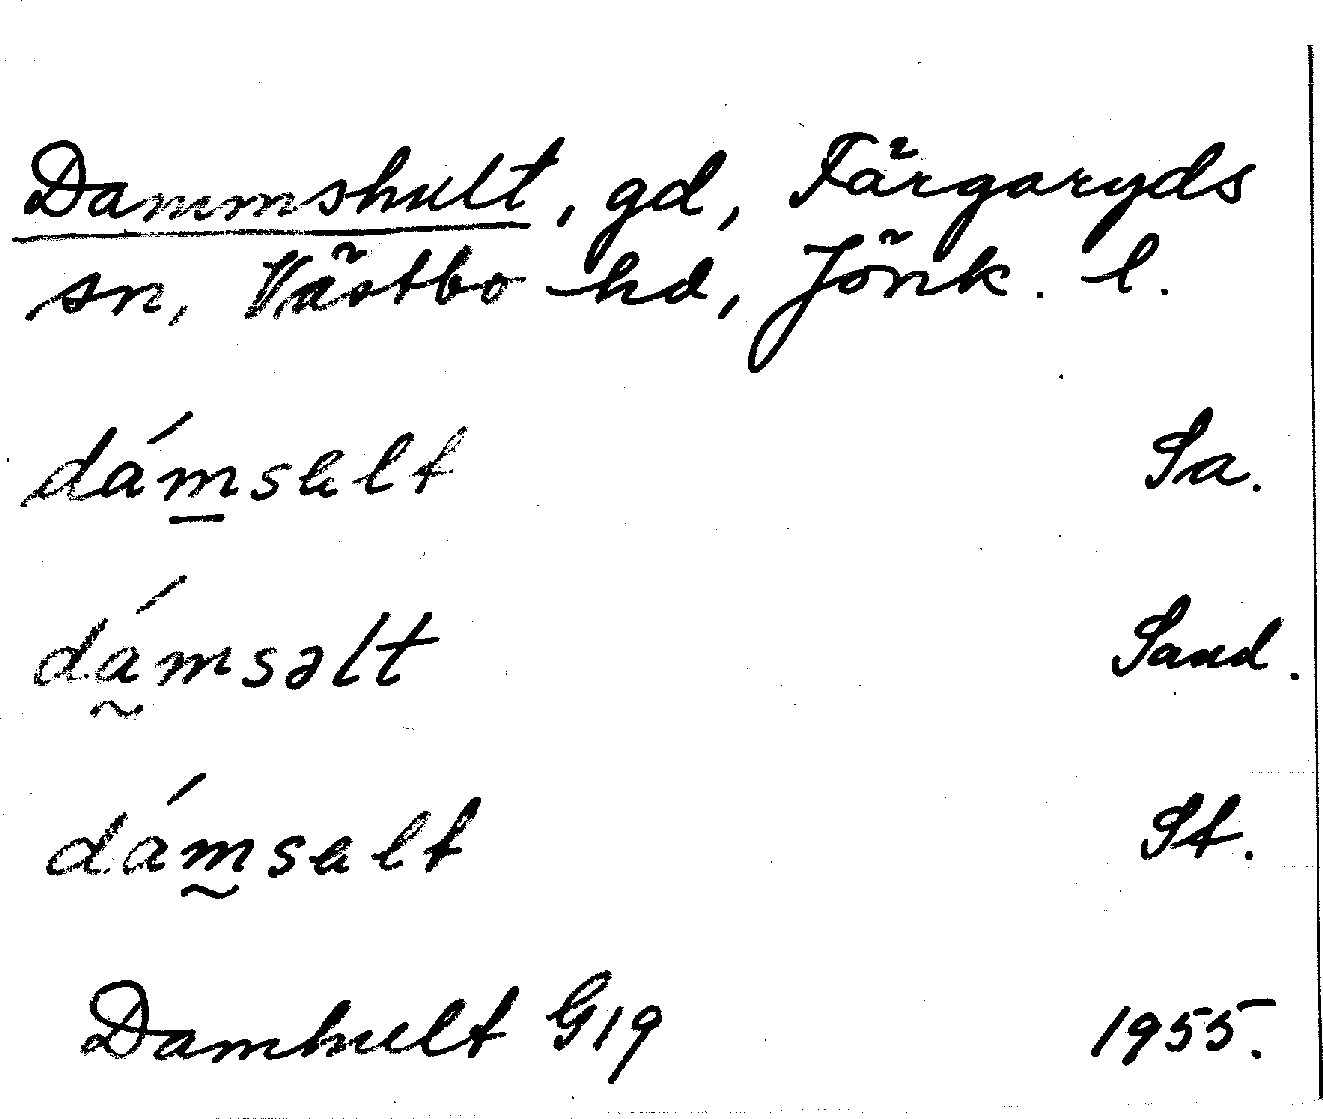 Dammshult, gd, Färgaryds
sn, Västbo hd, Jönk. l.
dám̲salt Sa.
dá̰msəlt Sand.
dám̰salt St.
Damhult G19 1955.